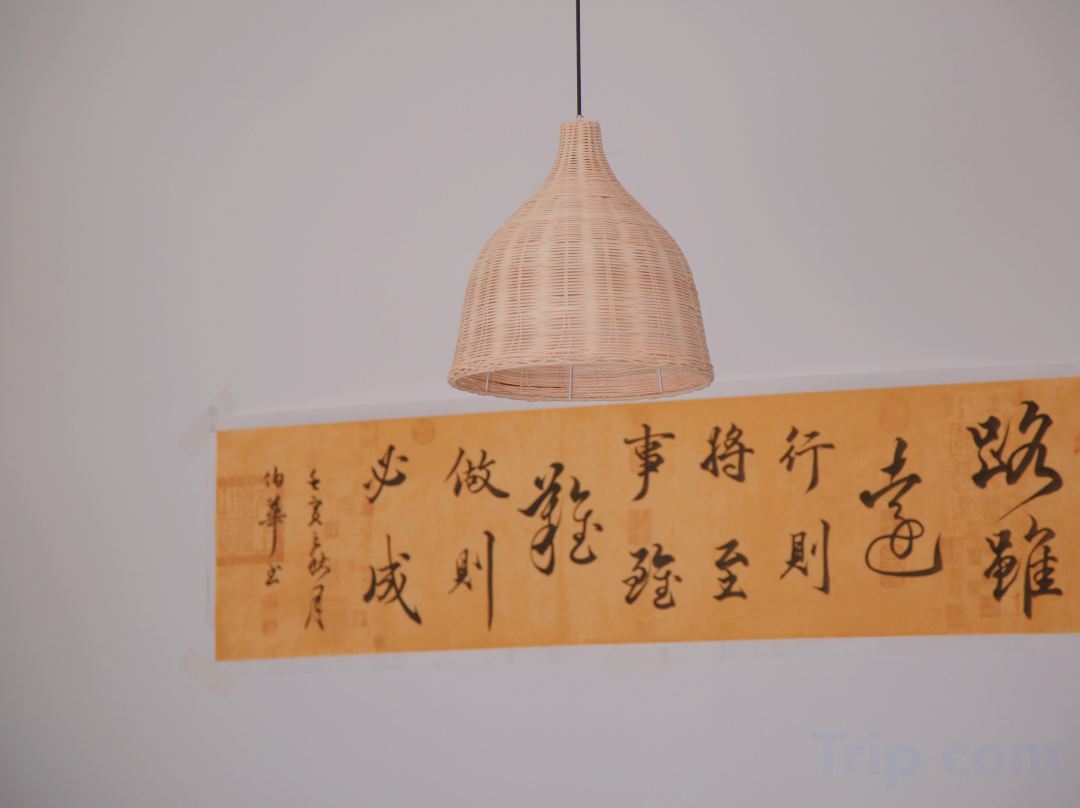 路雖
遠
行則
將至
事雖
難
做則
必成
壬寅之秋月
伯華书
Trip.com